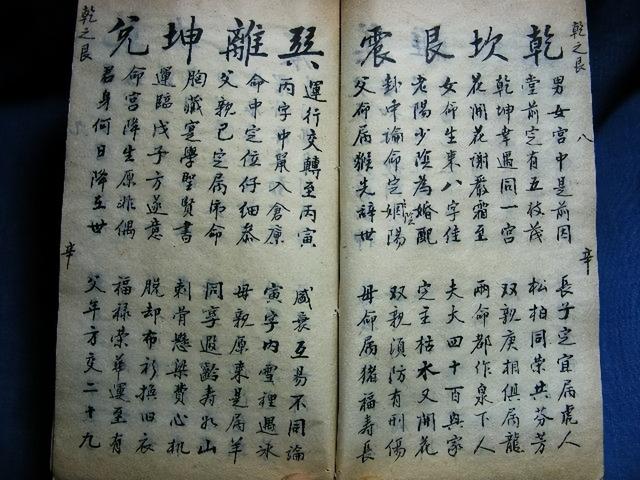 乾之艮 八 辛
乾 坎 艮 震
男女宮中是前因 長子定宜屬虎人
堂前定有五枝茂 松柏同榮共芬芳
乾坤幸遇同一宮 双親庚相俱屬龍
花開花謝嚴霜至 兩命都作泉下人
女命生來八字佳 夫大四十百與家
老陽少陰為婚配 定主枯木又開花
卦中論命定姻陽 双親須防有刑傷
父命屬猴先辭世 母命屬猪福寿長
巽 離 坤 兌
運行交轉至丙寅 盛衰互易不同論
丙字中鼠入倉廪 寅字內雪裡遇冰
命中定位仔細叅 母親原來是屬羊
父親已定屬命 同享遐齡寿如山
胸藏寔學聖賢書 刺骨懸梁費心机
運臨戊子方遂意 脱却布衫換旧衣
命宮降生原非偶 福禄榮華運至有
君身何日降立世 父年方交二十九
乾之艮 辛